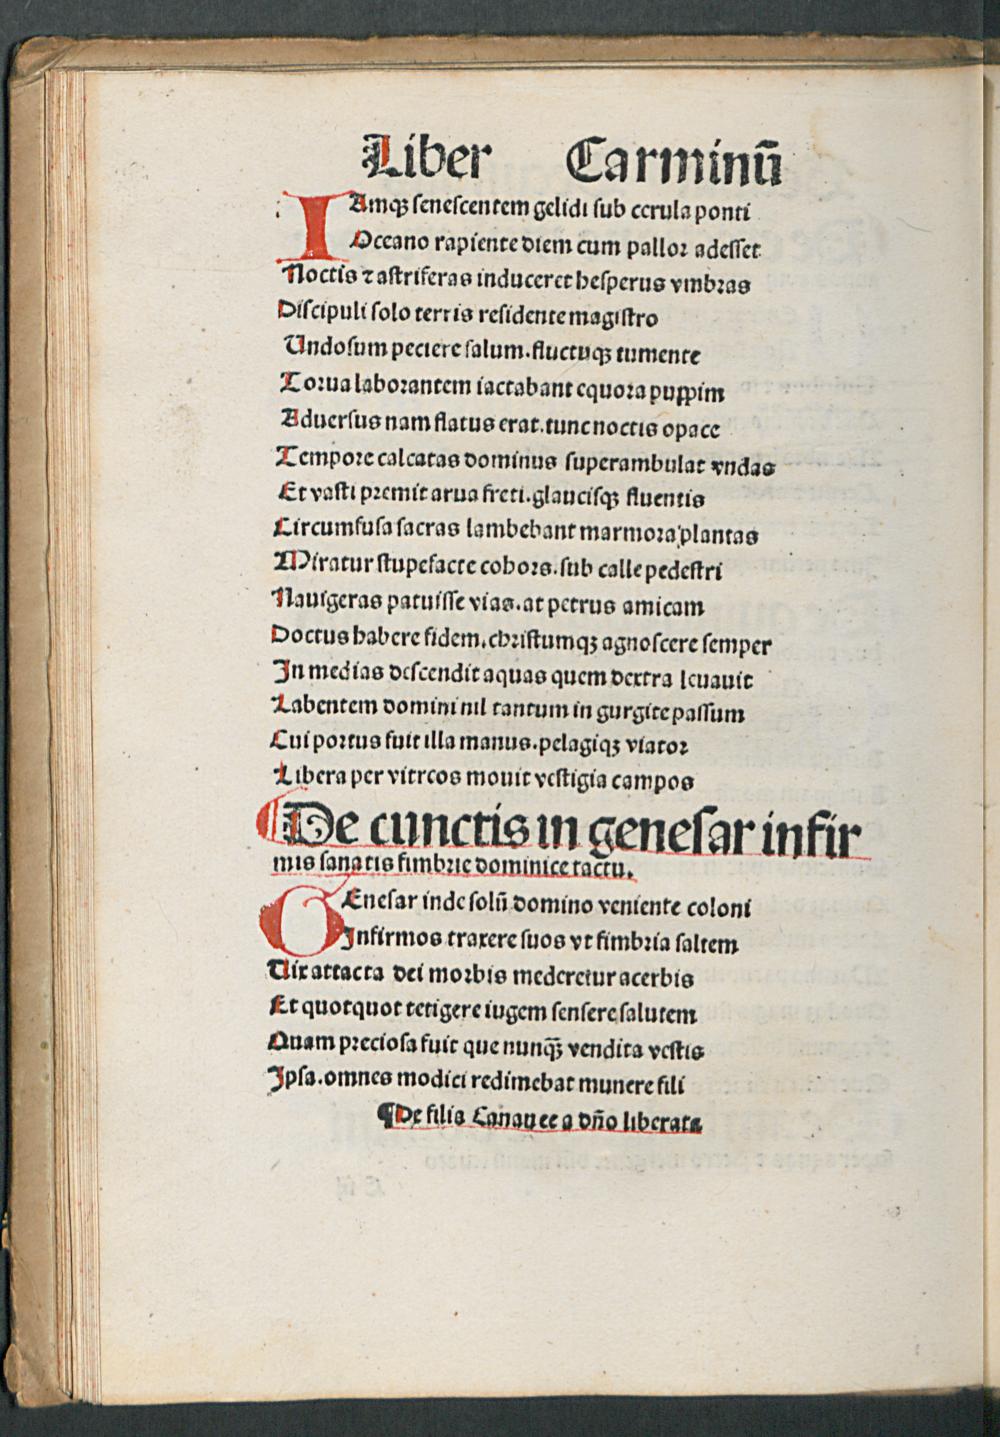 Liber Carminū
IAmqꝫ senescentem gelidi sub cerula ponti
Oceano rapiente diem cum pallor adesset
Noctis ⁊ astriferas induceret hesperus vmbras
Discipuli solo terris residente magistro
Undosum peciere salum.fluctuqꝫ tumente
Torua laborantem iactabant equora puppim
Aduersus nam flatus erat.tunc noctis opace
Tempore calcatas dominus superambulat vndas
Et vasti premit arua freti.glaucisqꝫ fluentis
Circumfusa sacras lambebant marmora plantas
Miratur stupefacte cohors.sub calle pedestri
Nauigeras patuisse vias.at petrus amicam
Doctus habere fidem.christumqꝫ agnoscere semper
In medias descendit aquas quem dextra leuauit
Labentem domini nil tantum in gurgite passum
Cui portus fuit illa manus.pelagiqꝫ viator
Libera per vitreos mouit vestigia campos
De cunctis in genesar infir
mis sanatis fimbrie dominice tactu.
GEnesar inde solū domino veniente coloni
Infirmos traxere suos vt fimbria saltem
Uix attacta dei morbis mederetur acerbis
Et quotquot tetigere iugem sensere salutem
Quam preciosa fuit que nunqꝫ̄ vendita vestis
Ipsa.omnes modici redimebat munere fili
¶De filia Cananee a dño liberata